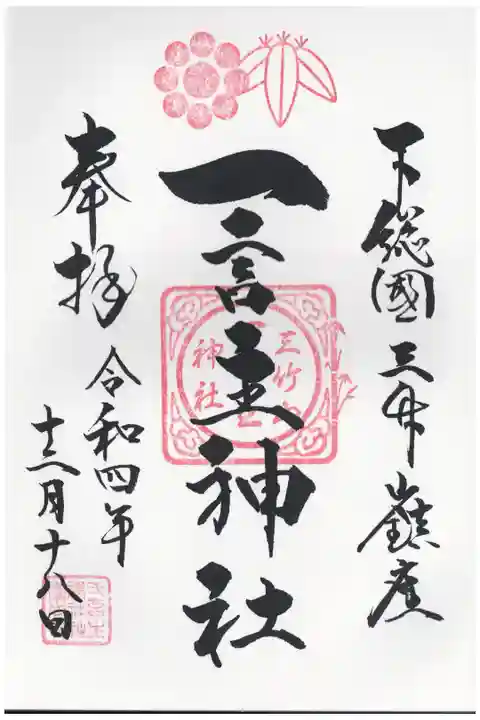 下総國三竹山鎮座
一言主神社
三竹山
神社
奉拝
令和四年
十二月十八日